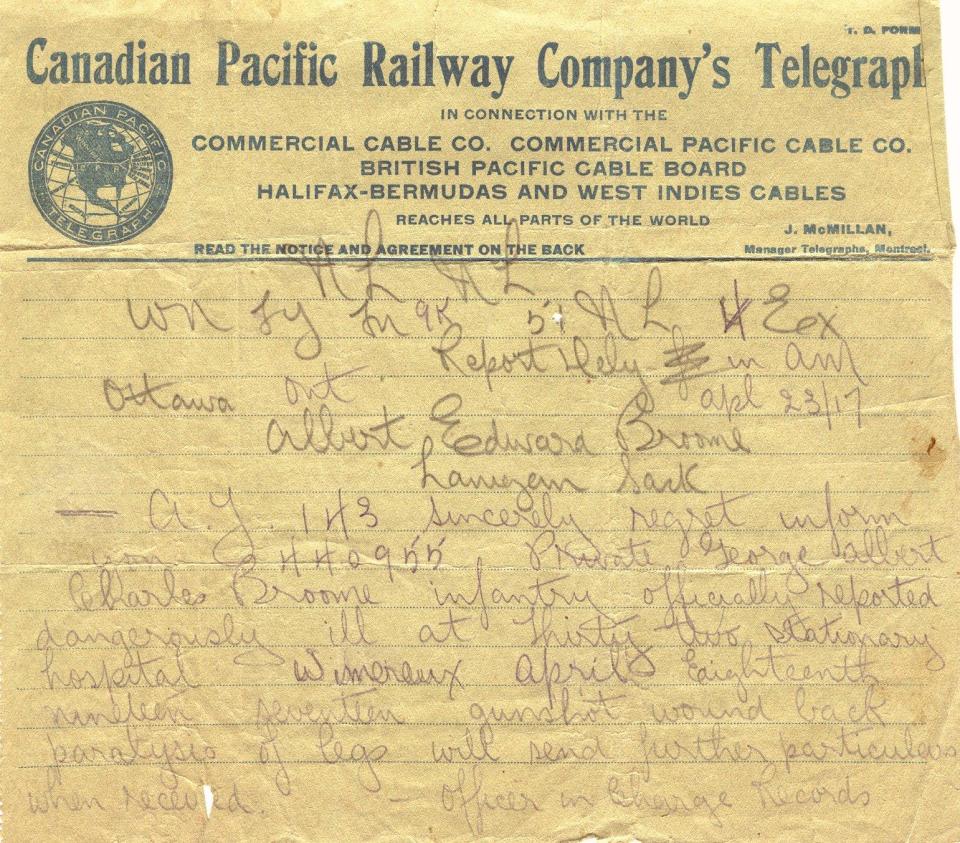 T. D. FORM
Canadian Pacific Railway Company's Telegraph
CANADIAN PACIFIC
TELEGRAPH
IN CONNECTION WITH THE
COMMERCIAL CABLE CO. COMMERCIAL PACIFIC CABLE CO.
BRITISH PACIFIC CABLE BOARD
HALIFAX-BERMUDAS AND WEST INDIES CABLES
REACHES ALL PARTS OF THE WORLD
J. McMILLAN,
READ THE NOTICE AND AGREEMENT ON THE BACK
Manager Telegraphs, Montreal.
NL NL
Wn Fy 51 NL 4 Ex
Report Dely in am
Ottawa Ont apl 23/17
Albert Edward Broome
Lanigan Sask
— A.J. 143 sincerely regret inform
you 440955 Private George Albert
Charles Broome infantry officially reported
dangerously ill at Thirty two stationary
hospital Wimereux April Eighteenth
nineteen seventeen gunshot wound back
paralysis of legs will send further particulars
when received. — Officer in Charge Records